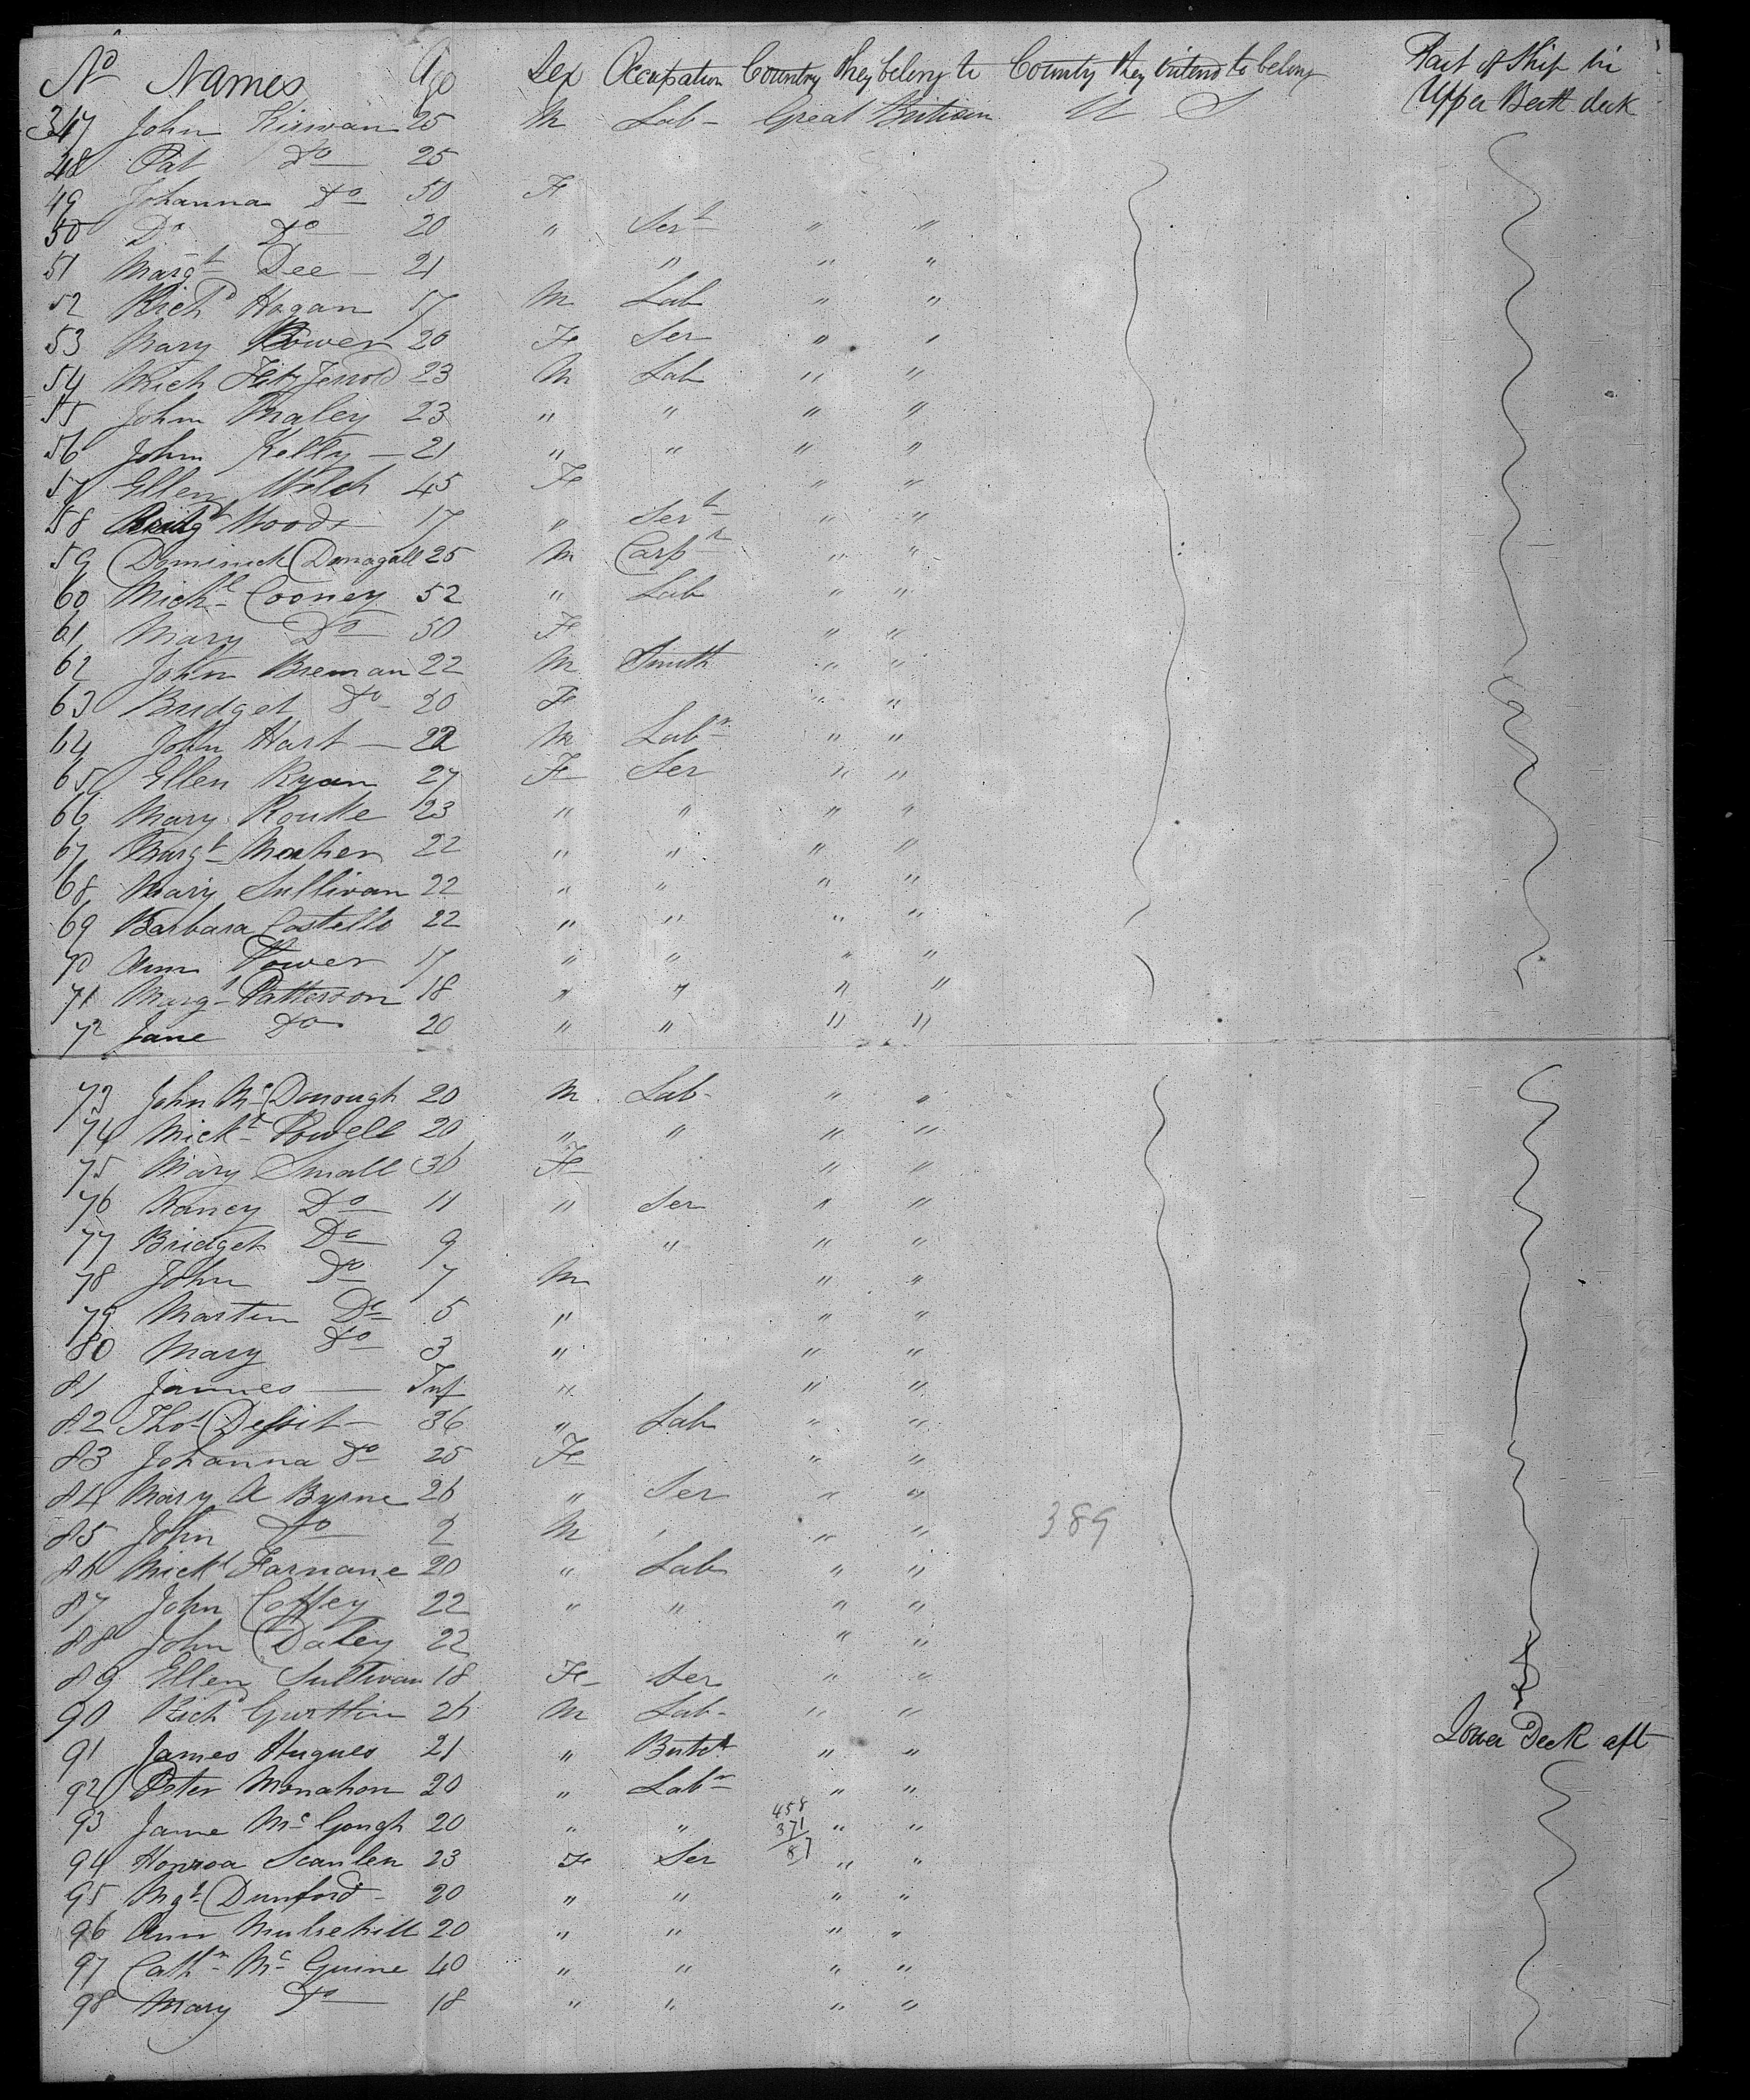 No Names Age Sex Occupation Country they belong to County they intend to belong Part of Ship in
347 John Kirwan 25 M Lab- Great Britain U S Upper Berth deck
48 Pat Do 25
49 Johanna Do 50 Fe
50 Do Do 20 " Sert " "
51 Margt Dee - 21 " " "
52 Richd Hogan 17 M Lab " "
53 Mary Power 20 Fe Ser " "
54 Mich Fitz Jerrold 23 M Lab " "
55 John Maley 23 " " " "
56 John Kelly - 21 " " " "
57 Ellen Welch 45 Fe " "
58 Bridgt Woods 17 " Sert " "
59 Dominick Donagall 25 M Carpr " "
60 Michl Cooney 52 " Lab " "
61 Mary Do 50 Fe " "
62 John Brenan 22 M Smith " "
63 Bridget Do 20 Fe " "
64 John Hart - 22 M Labr " "
65 Ellen Ryan 27 Fe Ser " "
66 Mary Rourke 23 " " " "
67 Margt Maher 22 " " " "
68 Mary Sullivan 22 " " " "
69 Barbara Costello 22 " " " "
70 Ann Power 17 " " " "
71 Margt Patterson 18 " " " "
72 Jane Do 20 " " " "
73 John Mc Donough 20 M Lab- " "
74 Michl Powell 20 " " " "
75 Mary Small 36 Fe " "
76 Nancy Do 11 " Ser " "
77 Bridget Do 9 " " "
78 John Do 7 M " "
79 Martin Do 5 " " "
80 Mary Do 3 " " "
81 James — Inf " " "
82 Thos 36 " Lab " "
83 Johanna Do 25 Fe " "
84 Mary A Byrne 26 " Ser " "
85 John Do 2 M " " 389
86 Michl Farnane 20 " Lab " "
87 John Coffey 22 " " " "
88 John Daley 22 " "
89 Ellen Sullivan 18 Fe Ser " "
90 Richd 26 M Lab- " "
91 James Hugues 21 " Butch " " Lower Deck aft
92 Peter Monahon 20 " Labr " "
93 Jame Mc Gough 20 " " 458 371 87 " "
94 Honroa Scanlen 23 Fe Ser " "
95 Mgt Dunford - 20 " " " "
96 Ann Mulsehill 20 " " " "
97 Cathn Mc Guine 40 " " " "
98 Mary Do 18 " " " "